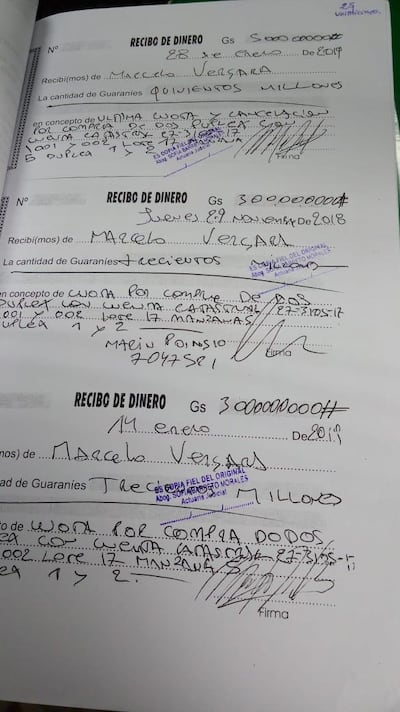 25
RECIBO DE DINERO Gs 500000000#
Nº
28 de enero De 2019
Recibí(mos) de Marcelo Vergara
La cantidad de Guaraníes QUINIENTOS MILLONES
en concepto de ULTIMA CUOTA Y CANCELACION
POR COMPRA DE DOS DUPLEX CON
CUENTA CATASTRAL 27-3105-17
001 Y 002 LOTE 17 MANZANA
5 DUPLEX 1 Y 2
ES COPIA FIEL DEL ORIGINAL
Actuaria Judicial
Firma
RECIBO DE DINERO Gs 300000000#
Nº
Jueves 29 NOVIEMBRE De 2018
Recibí(mos) de MARCELO VERGARA
La cantidad de Guaraníes trecientos
ES COPIA FIEL DEL ORIGINAL
en concepto de CUOTA POR COMPRA DE DOS
DUPLEX CON CUENTA CATASTRAL 27-3105-17
001 Y 002 LOTE 17 MANZANA 5
DUPLEX 1 Y 2
Firma
RECIBO DE DINERO Gs 300000000#
14 enero De 2019
mos) de Marcelo Vergara
ad de Guaraníes MILLONES
ES COPIA FIEL DEL ORIGINAL
Actuaria Judicial
to de CUOTA POR COMPRA DO DOS
CON CUENTA CATASTRAL 27-3105-
002 LOTE 17 MANZANA 5
1 Y 2
Firma